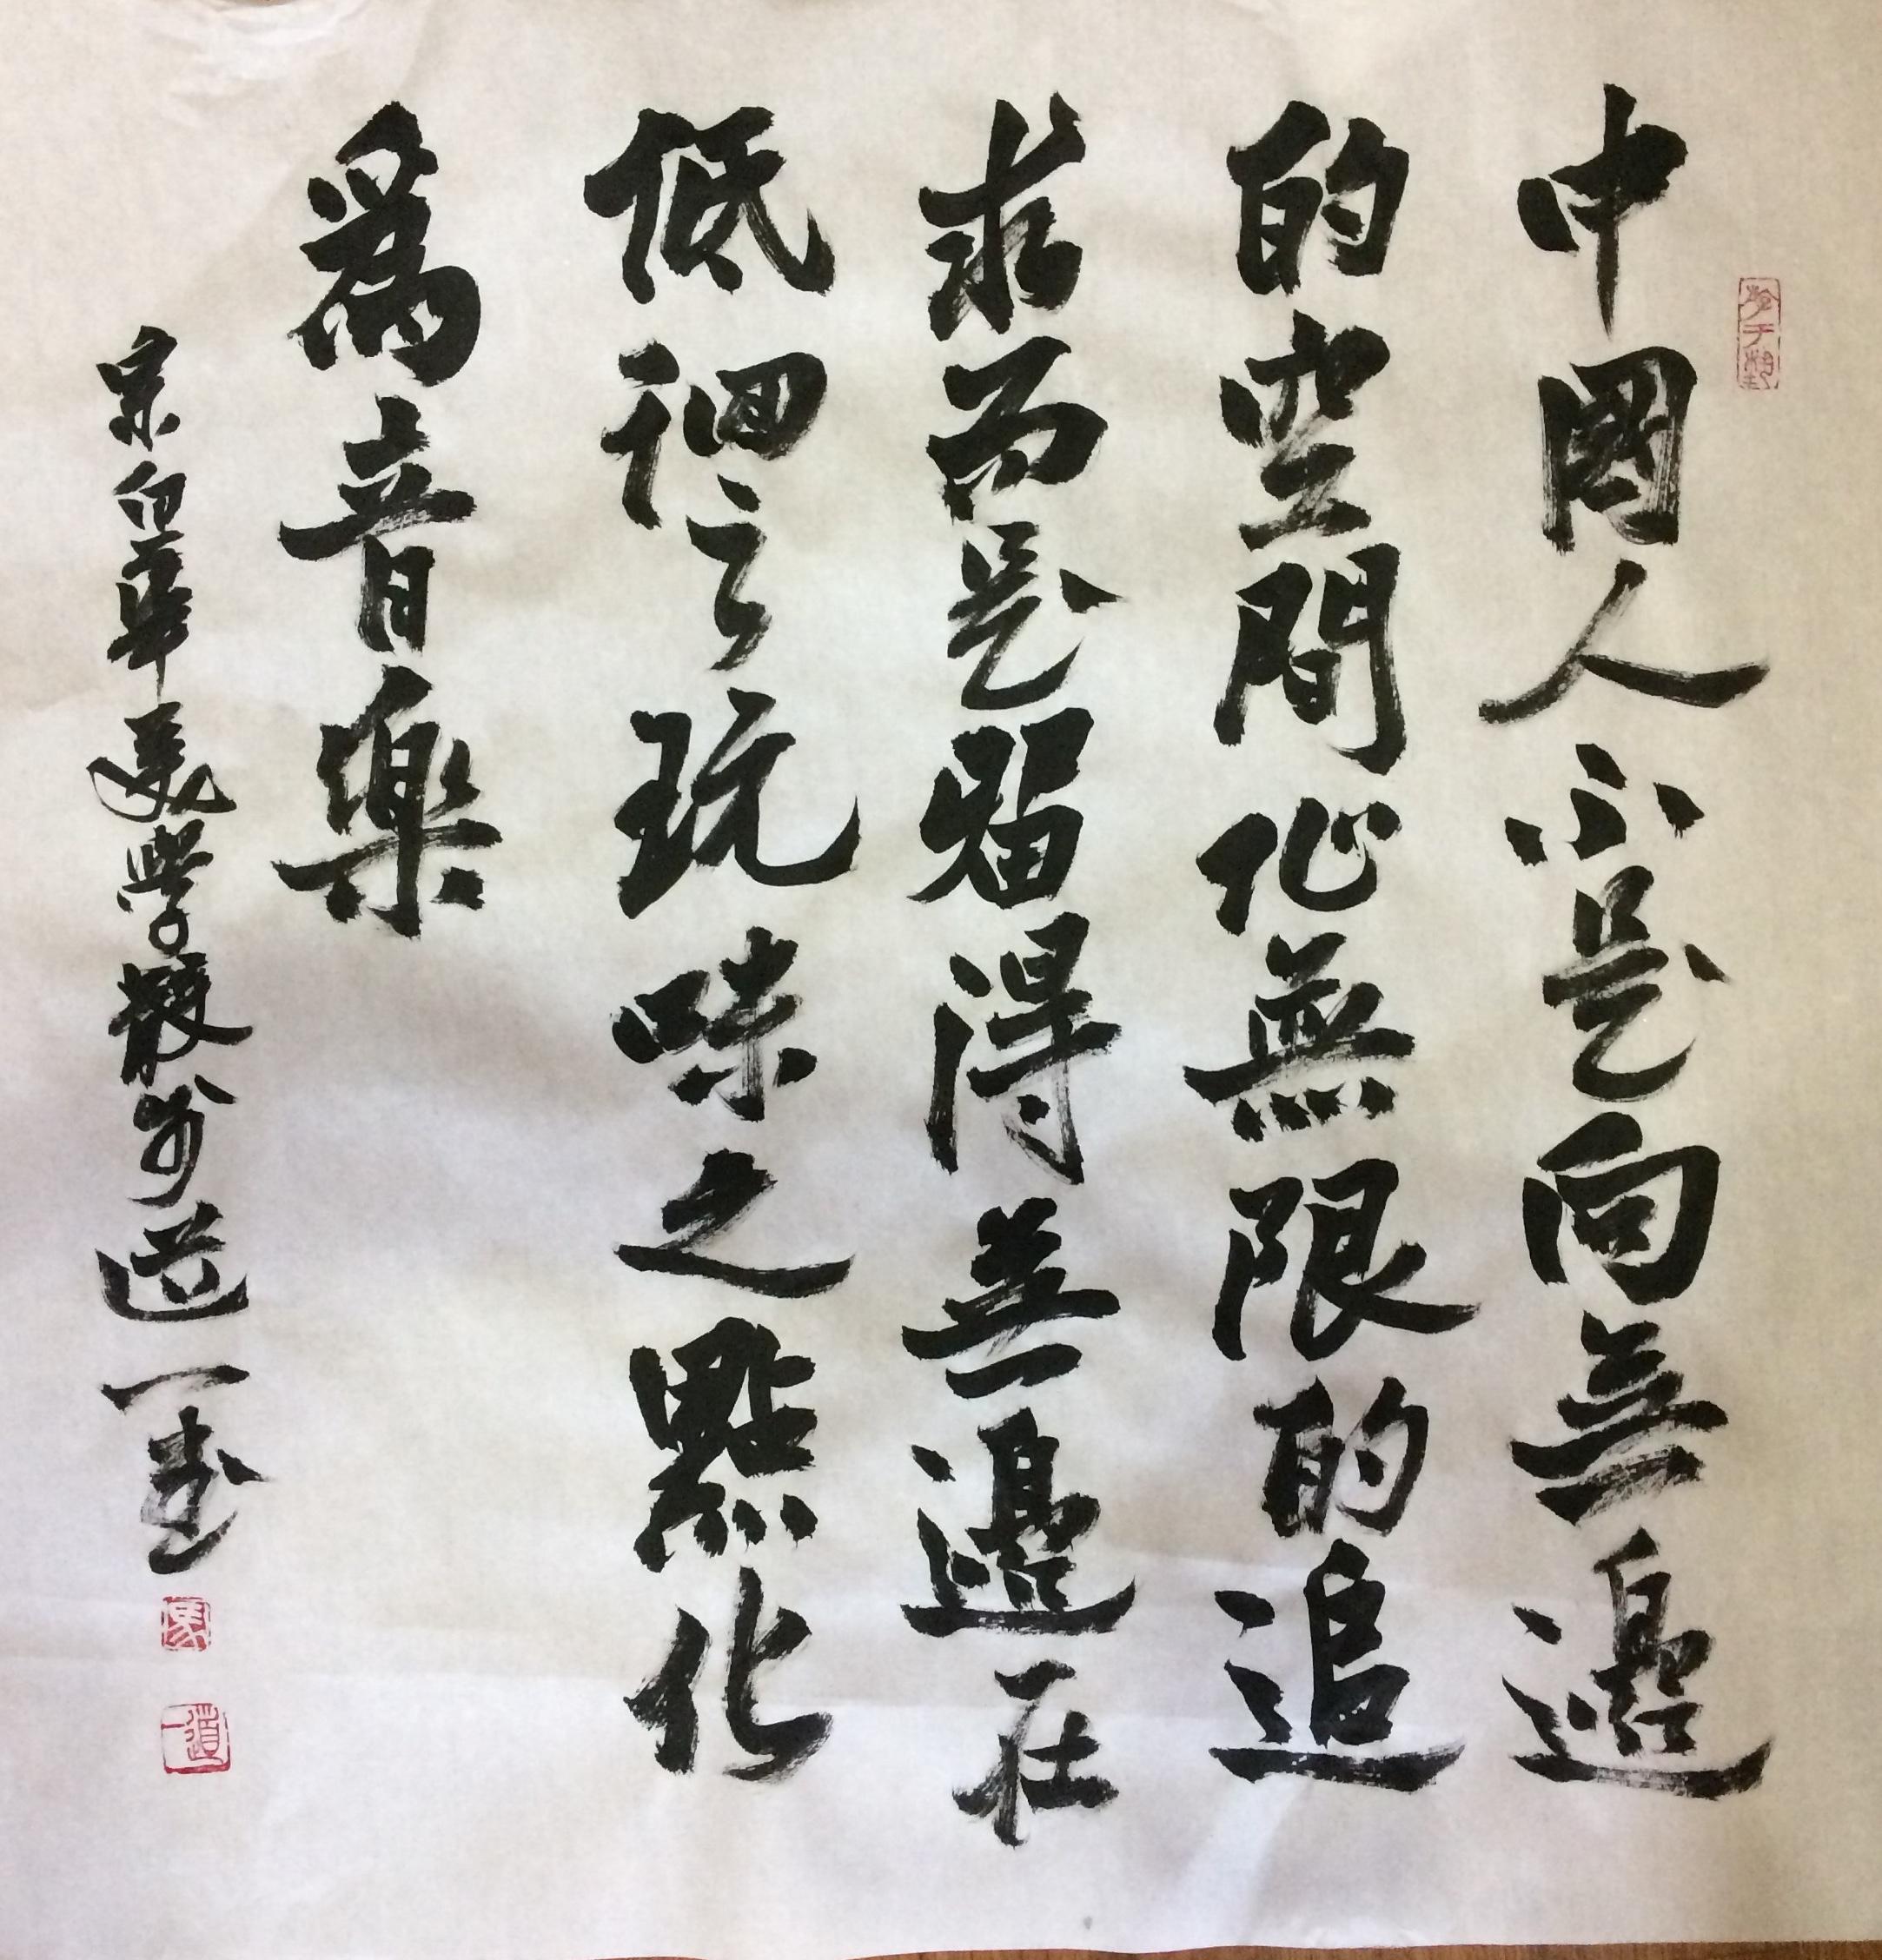 中國人不是向無邊
的空間作無限的追
求而是留得無邊在
低徊之玩味之點化
爲音樂
宗白華美學散步道一書
道一